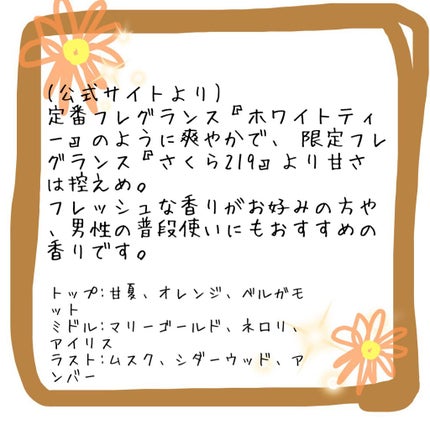 (公式サイトより)
定番フレグランス『ホワイトティ
ー』のように爽やかで、限定フレ
グランス『さくら219』より甘さ
は控えめ。
フレッシュな香りがお好みの方や
、男性の普段使いにもおすすめの
香りです。
トップ:甘夏、オレンジ、ベルガモ
ット
ミドル:マリーゴールド、ネロリ、
アイリス
ラスト:ムスク、シダーウッド、ア
ンバー